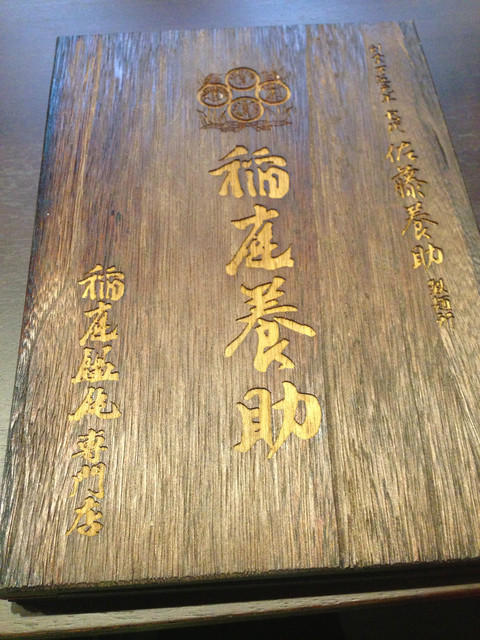 佐藤養助
稲庭養助
稲庭饂飩専門店